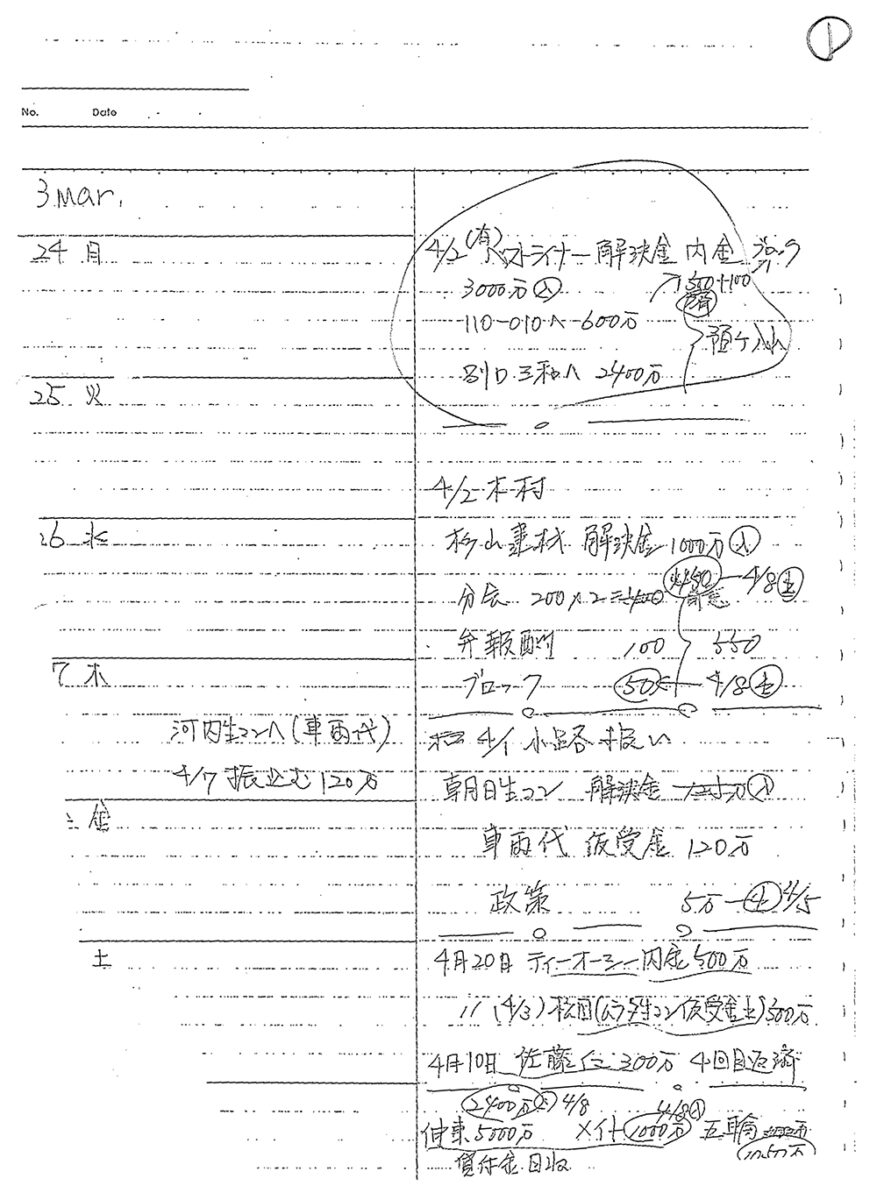 ①
No. Date
3 Mar.
24 月
25 火
26 水
7 木
河内生コンへ(車両代)
4/7 振込む 120万
金
土
4/2 (有)ベストライナー 解決金 内金
3000万 入
500+100
110-010へ 600万
預ケ入れ
別口 三和へ 2400万
4/2 木村
杉山建材 解決金 1000万 入
分会 200×2 4/8 出
弁報酬 100 550
ブロック 50 4/8 出
4/1 小路 扱い
朝日生コン 解決金 入
車両代 仮受金 120万
政策 5万 出 4/5
4月20日 ティーオーシー 内金 500万
〃 (4/3) 仮受金 500万
4月10日 佐藤 300万 4回目返済
2400万 入 4/8
4/8 入
5000万 メイト 1000万 五輪
1050万
貸付金 回収